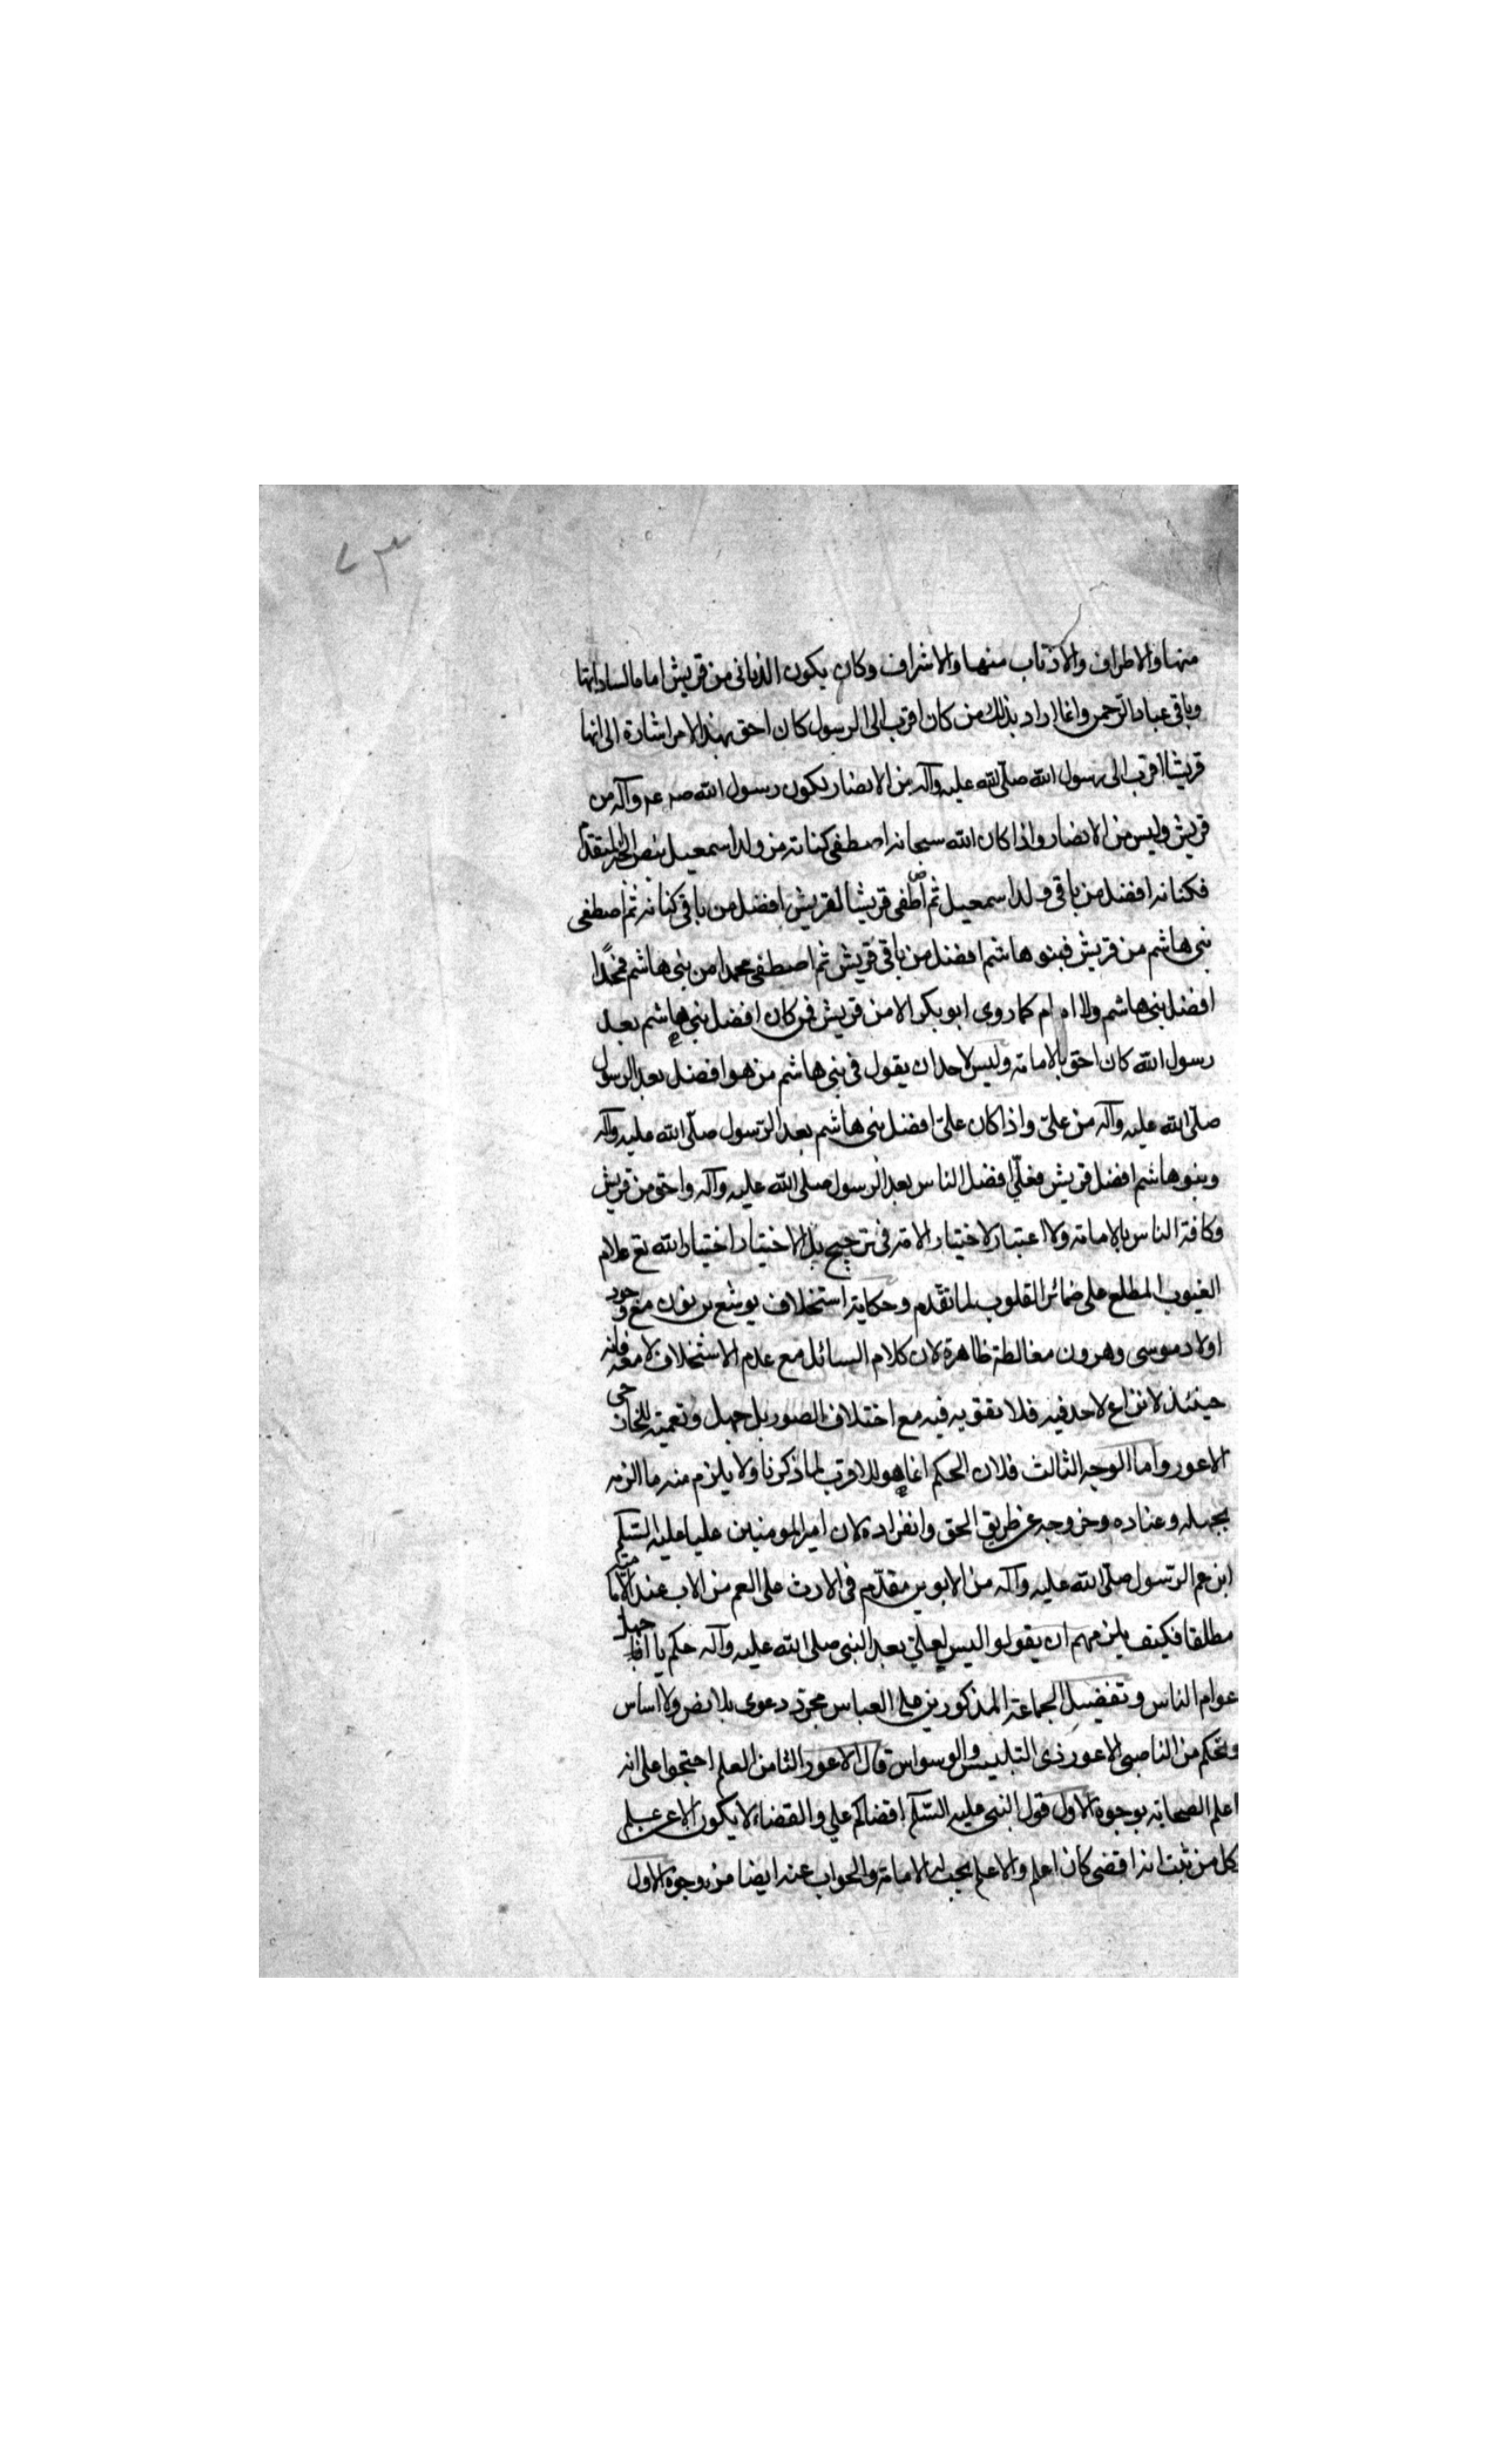 ٧٣
منها والاطراف والاذناب منها والاشراف وكان يكون الذنابى من قريش اماما لساداتها
وباقى عباد الرحمن وانما اراد بذلك من كان اقرب الى الرسول كان احق بهذا الامر اشارة الى انها
قريشا اقرب الى رسول الله صلى الله عليه وآله من الانصار لكون رسول الله صر عم وآله من
قريش وليس من الانصار واذا كان الله سبحانه اصطفى كنانة من ولد اسمعيل بنص الخبر المتقدم
فكنانه افضل من باقى ولد اسمعيل ثم اصطفى قريشا لقريش افضل من باقى كنانه ثم اصطفى
بنى هاشم من قريش فبنو هاشم افضل من باقى قريش ثم اصطفى محمدا من بنى هاشم فمحمدا
افضل بنى هاشم ولا ام كما روى ابو بكر الا من قريش فمن كان افضل بنى هاشم بعد
رسول الله كان احق بالامامة وليس لاحد ان يقول فى بنى هاشم من هو افضل بعد الرسول
صلى الله عليه وآله من على واذا كان على افضل بنى هاشم بعد الرسول صلى الله عليه وآله
وبنو هاشم افضل قريش فعلى افضل الناس بعد الرسول صلى الله عليه وآله واحق من قريش
وكافة الناس بالامامة ولا اعتبار لاختيار الامة فى ترجيح بل الاختيار اختيار الله تع علام
الغيوب المطلع على ضمائر القلوب لما تقدم وحكاية استخلاف يوشع بن نون مع وجود
اولاد موسى وهرون مغالطة ظاهرة لان كلام السائل مع عدم الاستخلاف لا معه فانه
حينئذ لا نزاع لاحد فيه فلا تقويه فيه مع اختلاف الصور بل جهل وتعمية للخارجى
الاعور واما الوجه الثالث فلان الحكم انما هو للاقرب لما ذكرنا ولا يلزم منه ما الزمه
بجهله وعناده وخروجه عن طريق الحق وانفراده لان امير المومنين عليا عليه السلم
ابن عم الرسول صلى الله عليه وآله من الابوين مقدم فى الارث على العم من الاب عند الامامية
مطلقا فكيف يلزمهم ان يقولوا ليس لعلى بعد النبى صلى الله عليه وآله حكم يا اجهل
عوام الناس وتفضيل الجماعة المذكورين على العباس مجرد دعوى بلا نص ولا اساس
وتحكم من الناصبى الاعور ذى التلبيس والوسواس قال الاعور الثامن العلم احتجوا على انه
اعلم الصحابة بوجوه الاول قول النبى عليه السلم اقضاكم على والقضاء لا يكون الا عن علم
كل من ثبت انه اقضى كان اعلم والاعلم يجب له الامامة والجواب عنه ايضا من وجوه الاول